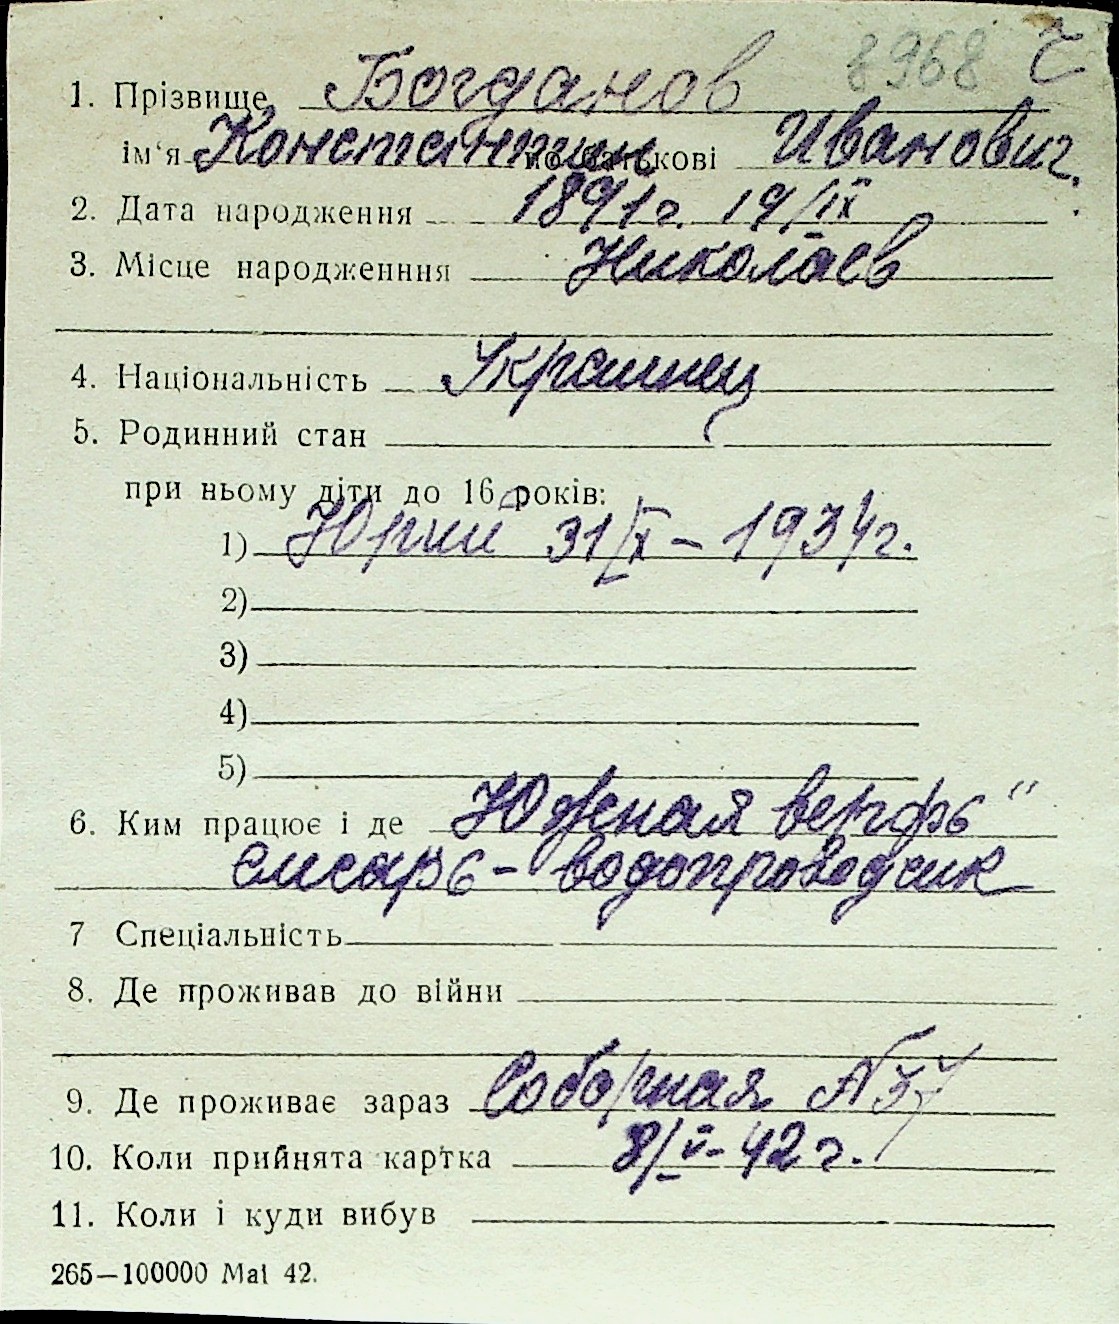 8968
1. Прізвище Богданов
ім'я Константин по батькові Иванович.
2. Дата народження 1891г. 19/IX
3. Місце народженння Николаев
4. Національність Украинец
5. Родинний стан
при ньому діти до 16 років:
1) Юрий 31/X – 1934г.
2)
3)
4)
5)
6. Ким працює і де Южная верфь"
слесарь - водопроводчик
7 Спеціальність
8. Де проживав до війни
9. Де проживає зараз Соборная №37
10. Коли прийнята картка 8/V - 42 г.
11. Коли і куди вибув
265—100000 Mai 42.